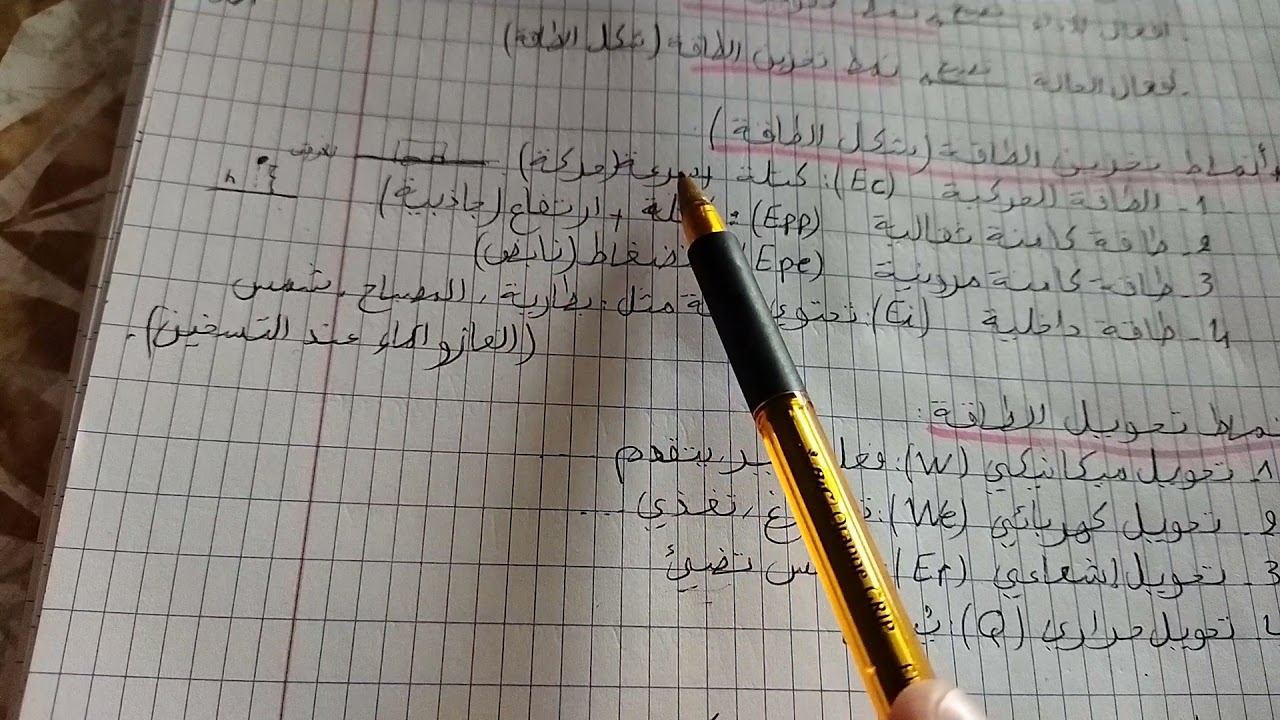 أفعال الحالة نمط تخزين الطاقة (شكل الطاقة)
أنماط تخزين الطاقة (شكل الطاقة)
1- الطاقة الحركية (Ec): كتلة + سرعة (حركة)
2- طاقة كامنة ثقالية (Epp): + ارتفاع (جاذبية) h
3- طاقة كامنة مرونية (Epe) (نابض)
4- طاقة داخلية (Ei): تحتوي مثل: بطارية, المصباح, شمس
(الغاز و الماء عند التسخين).
نماط تحويل الطاقة:
1 تحويل ميكانيكي (W): يتقدم
2- تحويل كهربائي (We): تغذي ...
3- تحويل إشعاعي (Er): تضيئ
تحويل حراري (Q)
Orange GRIP